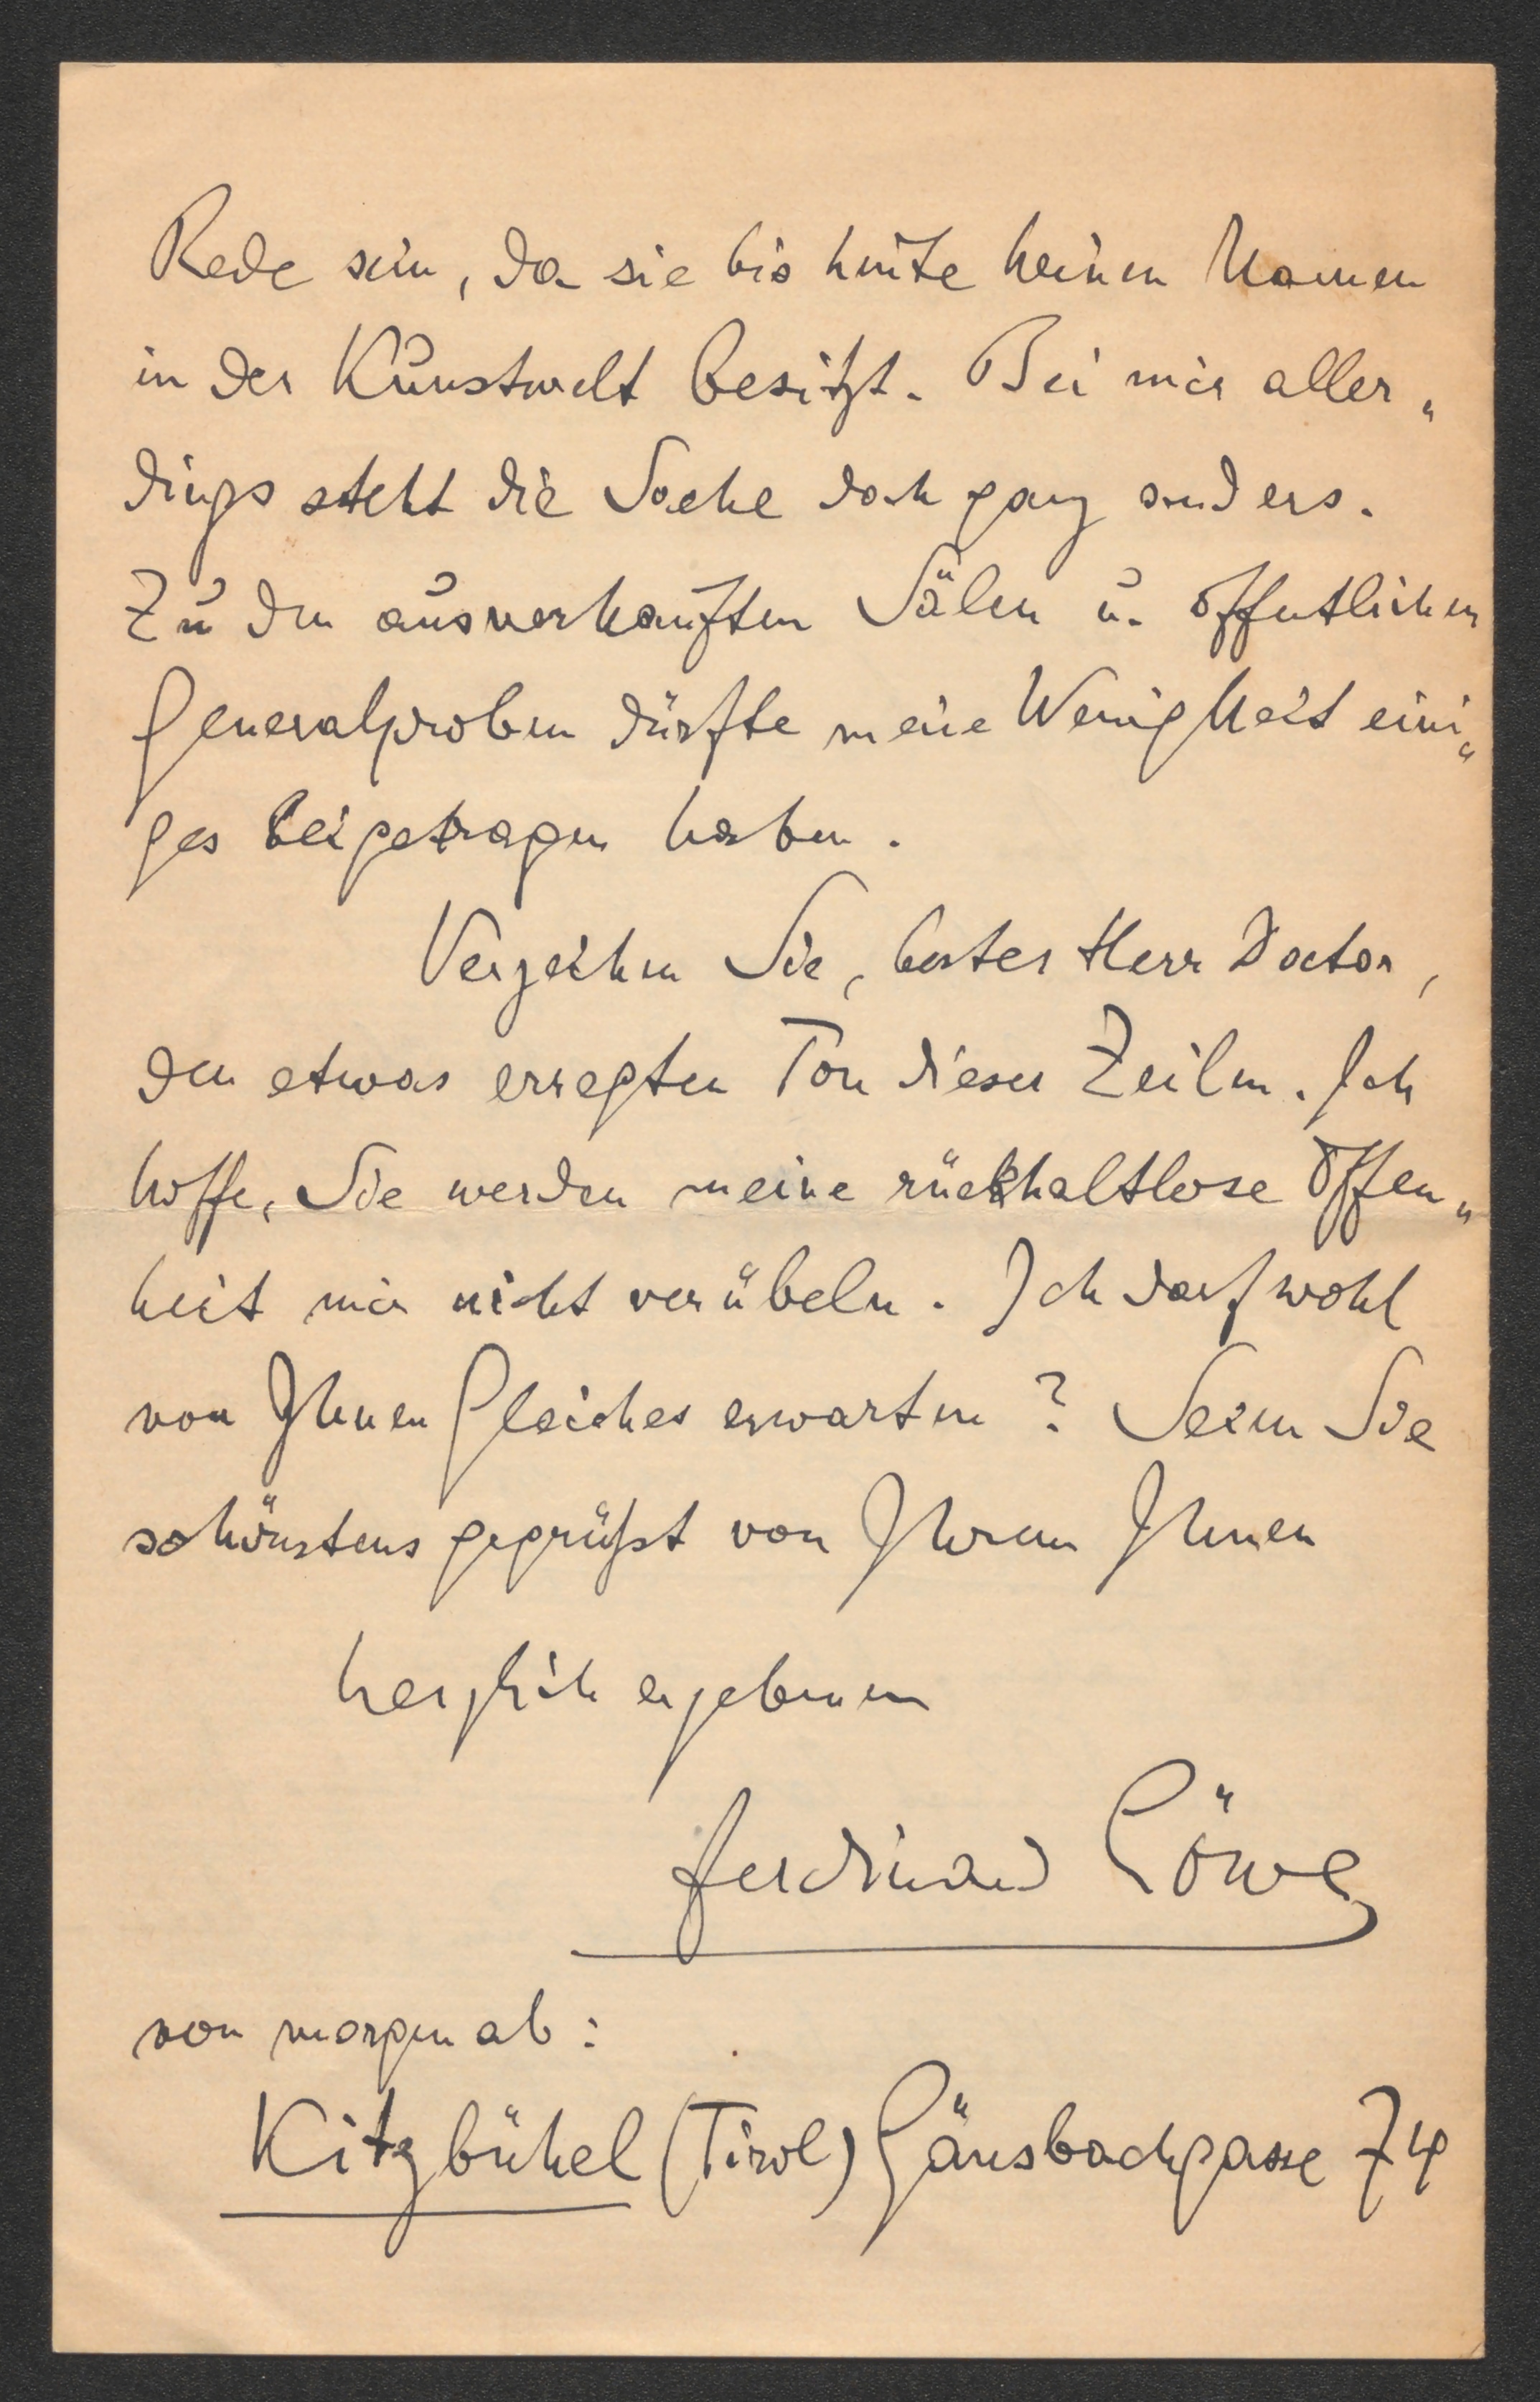 Rede sein, da sie bis heute keinen Namen
in der Kunstwelt besitzt. Bei mir aller„
dings steht die Sache doch ganz anders.
Zu den ausverkauften Sälen u. öffentlichen
Generalproben dürfte meine Wenigkeit eini„
ges beigetragen haben.
Verzeihen Sie, bester Herr Doctor,
den etwas erregten Ton dieser Zeilen. Ich
hoffe, Sie werden meine rückhaltlose Offen„
heit mir nicht verübeln. Ich darf wohl
von Ihnen Gleiches erwarten? Seien Sie
schönstens gegrüßt von Ihrem Ihnen
herzlich ergebenen
Ferdinand Löwe
von morgen ab:
Kitzbühel (Tirol) Gänsbachgasse 74